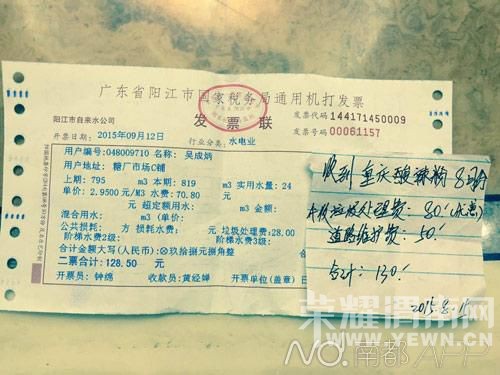 广东省阳江市国家税务局通用机打发票
阳江市自来水公司
发票联
发票代码 144171450009
发票号码 00061157
开票日期:2015年09月12日
行业分类:水电业
用户户号:048009710 吴成炳
用户地址:糖厂市场C铺
上期:795 m3 本期:819 m3 实用水量:24
单价:2.9500元/m3 水费:70.80
m3 超定额用水: m3 金额:
混合用水: m3 单价:
公共损耗: 方 损耗水费: 元 垃圾处理费:28.00
阶梯水费2级: 阶梯水费3级:
合计金额大写(人民币):⊗玖拾捌元捌角整
二票合计:128.50 元
开票员:钟绵 收款员:黄经婵 开票单位(盖章)
收到 重庆酸辣粉 8月份
垃圾处理费:80!(优惠)
道路维护费:50!
合计:130!
2015.8.15
荣耀渭南网
YEWN.CN
NO.南都APP